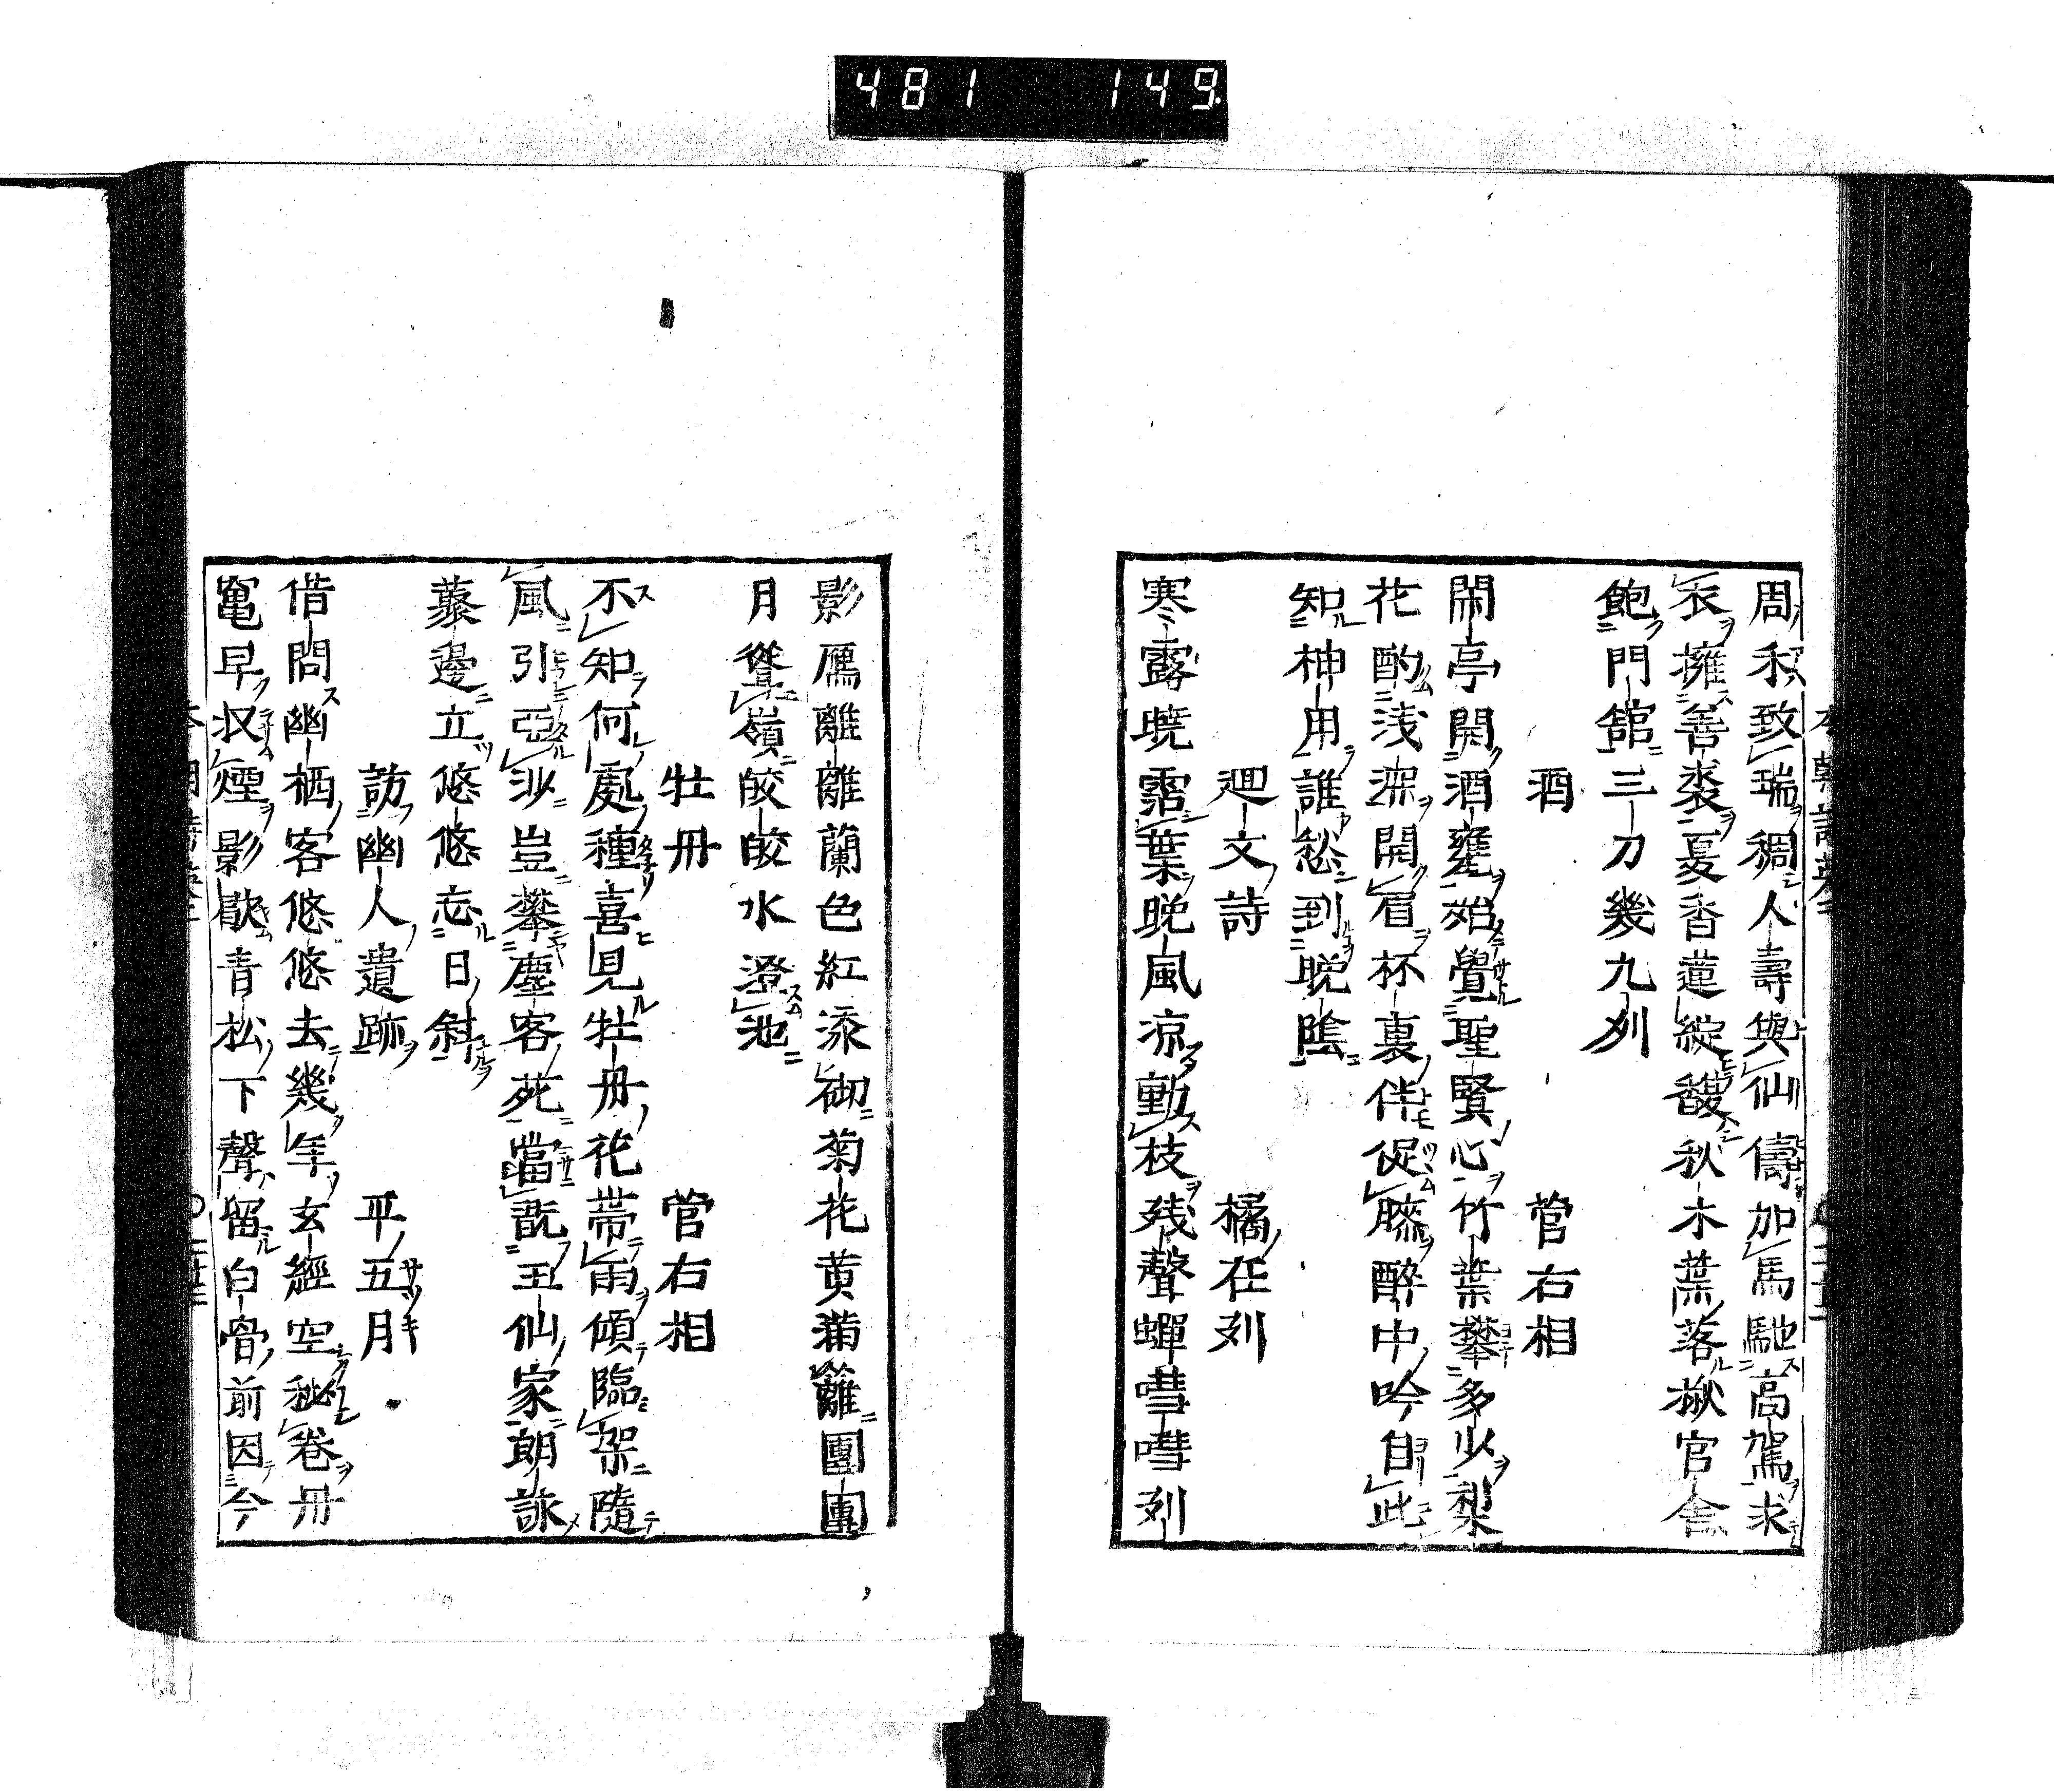 481 149
周禾致瑞稠人壽與仙儔加馬馳高駕求
衣擁善裘夏香蓮綻馥秋木葉落揪官舍
飽門館三刀幾九刕
酒 菅右相
閑亭開酒甕始覺聖賢心竹葉攀多少梨
花酌浅深開眉杯裏伴促膝醉中吟自此
知神用誰愁到晚陰
廻文詩 橘在列
寒露曉霑葉晚風凉動枝残聲蟬嘒嘒列
影鴈離離蘭色紅添御菊花黄満籬團團
月聳嶺皎皎水澄池
牡丹 菅右相
不知何處種喜見牡丹花帶雨傾臨架隨
風引亞沙豈攀塵客死當翫王仙家朗詠
藜邊立悠悠忘日斜
訪幽人遺跡 平五月
借問幽栖客悠悠去幾年玄經空秘卷丹
竃早収煙影歇青松下聲留白骨前因今